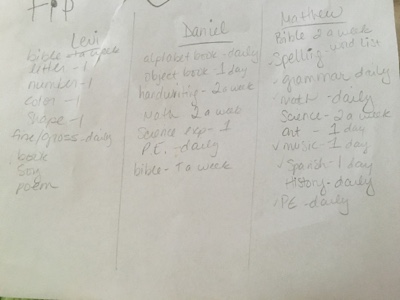 Levi
bible - a week
letter - 1
number - 1
color - 1
Shape - 1
fine/gross - daily
book
Song
poem
Daniel
alphabet book - daily
object book - 1 day
handwriting - 2 a week
Math - 2 a week
Science exp - 1
P.E. - daily
bible - a week
Matthew
Bible 2 a week
Spelling word list
grammar daily
Math - daily
Science - 2 a week
art - 1 day
music - 1 day
Spanish - 1 day
History - daily
PE - daily